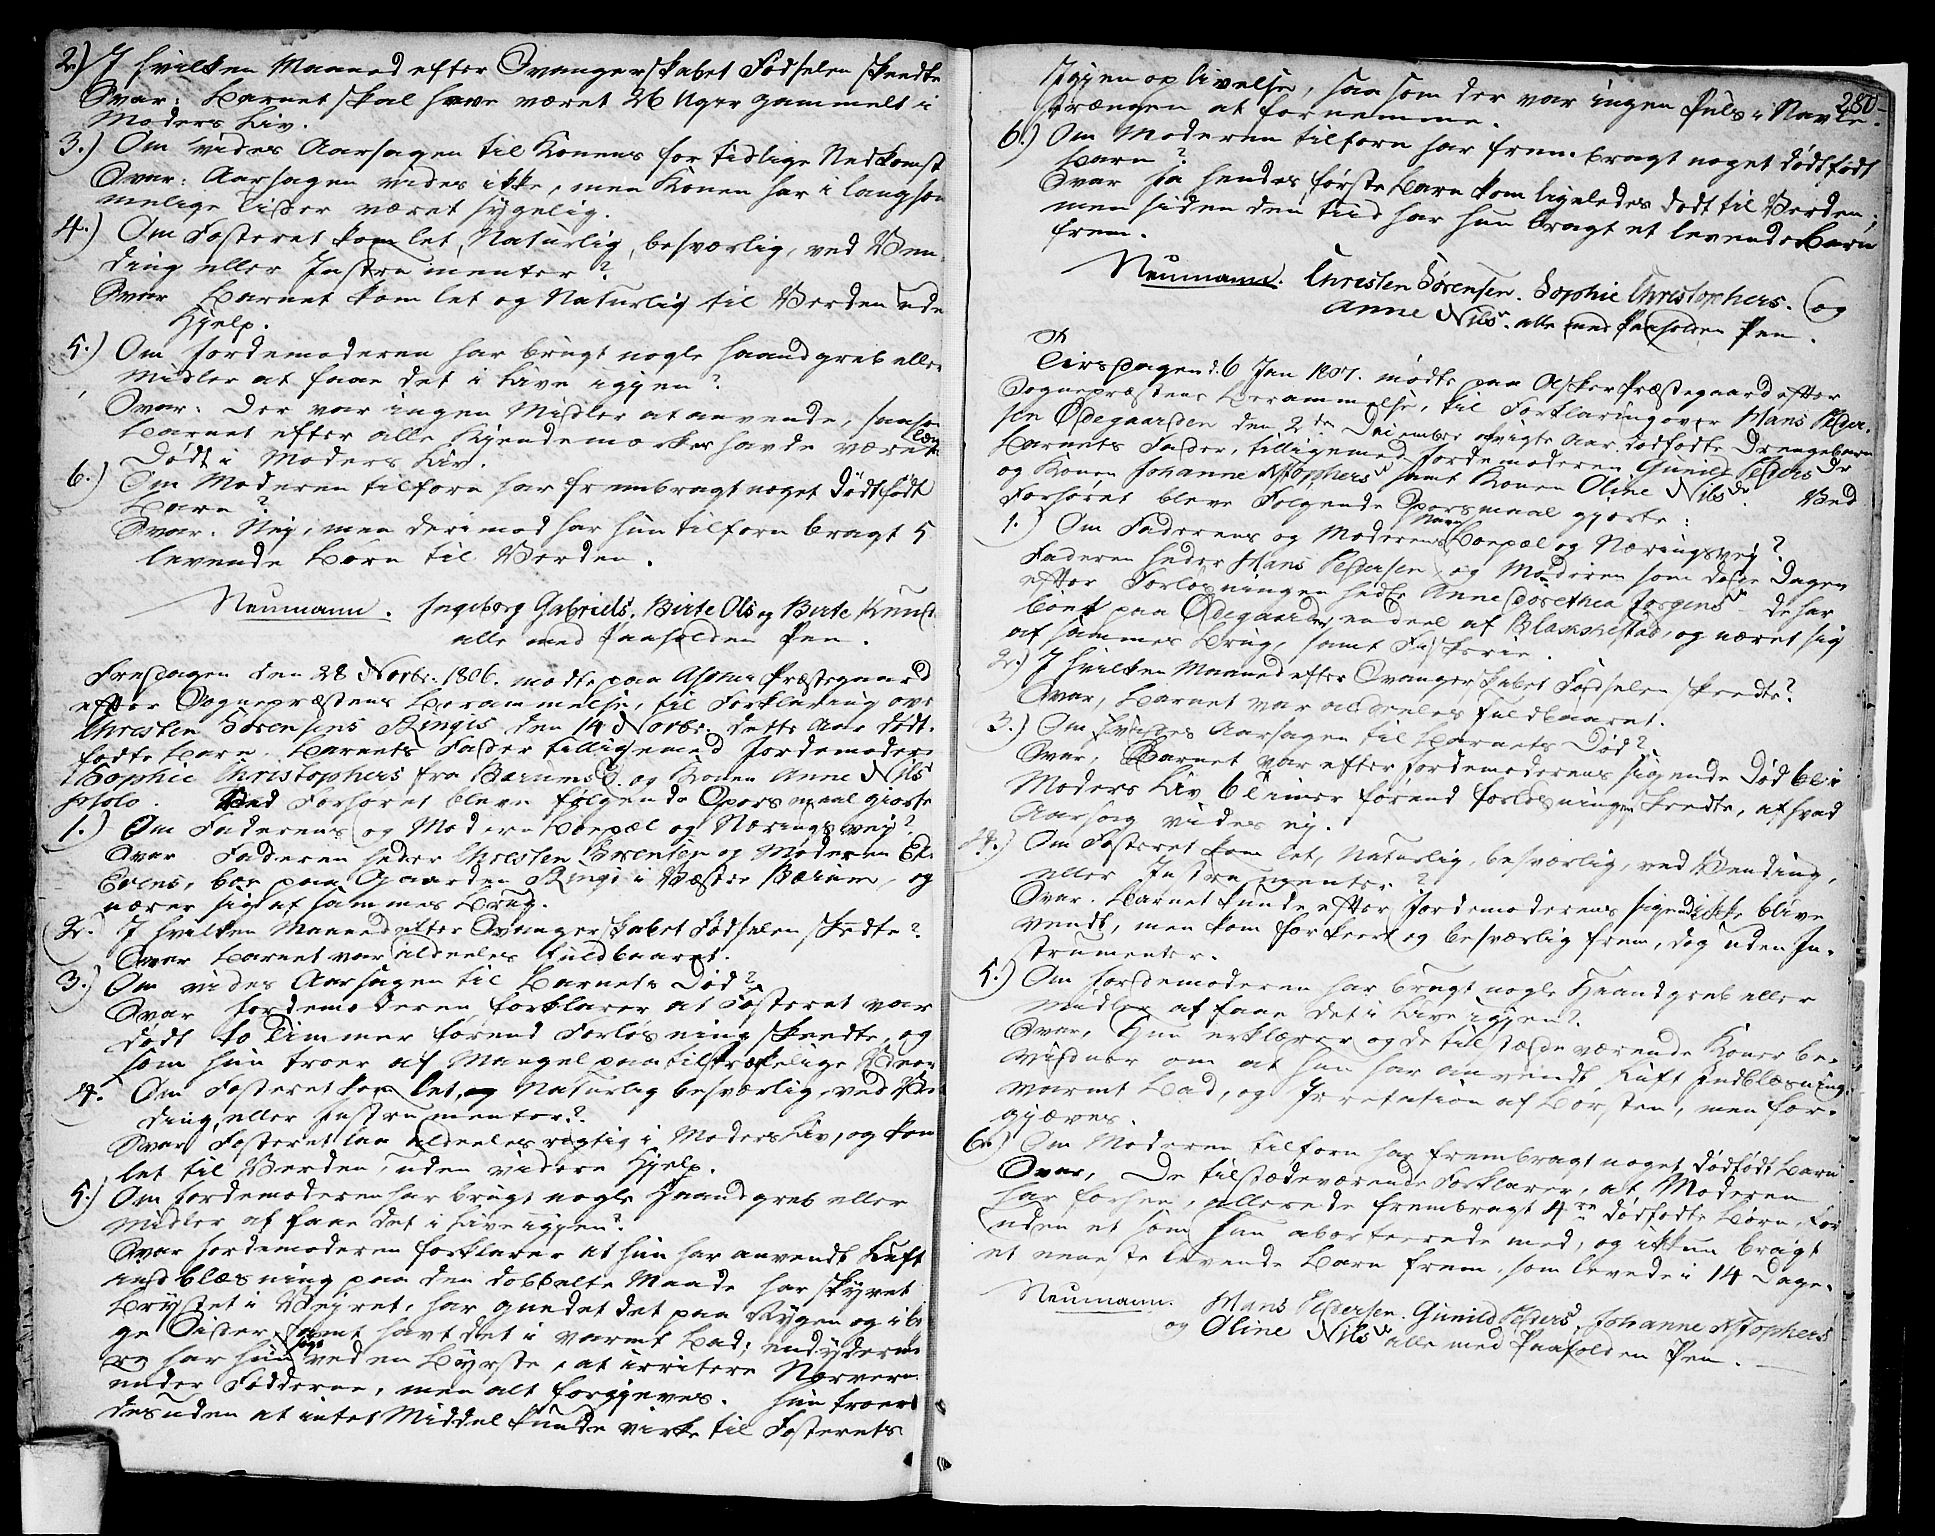 2.) I hvilken Maaned efter Svangerskabet Fødselen skeedte
Svar: Barnet skal have været 26 Uger gammelt i
Moders Liv.
3.) Om vides Aarsagen til Konens for tidlige Nedkomst
Svar: Aarsagen vides ikke, men Konen har i langsom
melige Tider været sygelig.
4.) Om Fosteret kom let, Naturlig, besværlig, ved Ven-
ding eller Instrumenter?
Svar Barnet kom let og Naturlig til Verden uden
Hjelp.
5.) Om Jordemoderen har brugt nogle Haandgreb eller
Midler at faae det i Live igjen?
Svar: Der var ingen Midler at anvende, saasom
Barnet efter alle Kjendemærker havde været læng
Dødt i Moders Liv.
6.) Om Moderen tilforn har frembragt noget dødtfødt
Barn?
Svar: Nej, men derimod har hun tilforn bragt 5
levende Børn til Verden.
Neumann. Ingeborg Gabriels, Birte Ols og Birte Knuds
alle med paaholden Pen.
Fredagen den 28 Novbr. 1806. mødte paa Asker Præstegaard
efter Sognepræstens Berammelse, til Forklaring over
Christen Sørensens Ringis den 14 Novbr. dette Aar død-
fødte Barn. Barnets Fader tilligemed Jordemoder
Sophie Christophers fra Bærums og Konen Anne Nils
Ved Forhøret bleve følgende Spørsmaal giorte
1.) Om Faderens og Moderens Boepæl og Næringsvej?
Svar Faderen heder Christen Sørensen og Moderen El.
Evens, boe paa Gaarden Ringi i Væstre Bærum, og
nærer sig af sammes Brug.
2.) I hvilken Maaned efter Svangerskabet Fødselen skedte?
Svar Barnet var aldeeles fuldbaaret.
3.) Om vides Aarsagen til Barnets Død?
Svar Jordemoderen forklarer at Fosteret var
dødt to Timer forend Forløsning skeedte, og
som hun troer af Mangel paa tilstrækelige Veer
4. Om Fosteret kom let, og Naturlig besværlig, ved Ven
ding, eller Instrumenter?
Svar Fosteret laa aldeeles rigtig i Moders Liv, og kom
let til Verden, uden videre Hjelp.
5.) Om Jordemoderen har brugt nogle Haandgreb eller
Midler at faae det i Live igjen?
Svar Jordemoderen forklarer at hun har anvendt Luft
indblæsning paa den dobbelte Maade har skyret
Brystet i Vejret, har gnedet det paa Rygen og i be
ge Sider samt havt det i varmt Bad; endydermee
re har hun søgt ved en Byrste, at irritere Nerverne
under Fødderne, men alt forgjeves. Hun troer
desuden at intet Middel kunde virke til Fosterets
280
igjen oplivelse, saasom der var ingen Puls i Navle-
strængen at fornemme.
6.) Om Moderen tilforn har frembragt noget dødtfødt
Barn?
Svar Ja hendes første Barn kom ligeledes dødt til Verden;
men siden den tiid har hun bragt et levende Barn
frem.
Neumann. Christen Sørensen. Sophie Christophers. og
Anne Nils. alle med Paaholden Pen.
Tirsdagen d. 6 Jan 1807. mødte paa Asker Præstegaard efter
Sognepræstens Berammelse, til Forklaring over Hans Peder-
sen Ødegaarden den 2den December afvigte Aar dødfødte Drengebarn
Barnets Fader, tilligemed Jordemoderen Gunild Peders Dr
og Konen Johanne Xstophers samt Konen Oline Nils Dr. Ved
Forhøret bleve Følgende Spørsmaal gjorte:
1.) Om Faderens og Moderens Navn Boepæl og Næringsvej?
Faderen heder Hans Pedersen og Moderen som døde Dagen
efter Forløsningen hedte Anne Dorethea Jørgens. De har
boet paa Ødegaarden, en deel af Blakkestad, og næret sig
af sammes Brug, samt Fiskerie.
2.) I hvilken Maaned efter Svangerskabet Fødselen skedte?
Svar, Barnet var aldeeles fuldbaaret.
3.) Om hvides Aarsagen til Barnets Død?
Svar, Barnet var efter Jordemoderens sigende Død bl. i
Moders Liv 6 Timer forend forløsningen skedte, af hvad
Aarsag vides ej.
4.) Om Fosteret kom let, Naturlig, besværlig, ved Vending,
eller Instrumenter?
Svar. Barnet kunde efter Jordemoderens sigende ikke blive
vendt, men kom forkeert og besværlig frem, dog uden In-
strumenter.
5.) Om Jordemoderen har brugt nogle Haandgreb eller
Midler at faae det i Live igjen?
Svar, Hun erklærer og de tilstædeværende Koner be-
vidner om at hun har anvendt Luft Indblæsning,
varmt Bad, og Irretation af Børsten, men for-
gjæves.
6.) Om Moderen tilforn har frembragt noget dødfødt Barn
Svar, De tilstædeværende Forklarer, at Moderen
har forhen, allerede frembragt 4re dødfødte Børn, for
uden et som hun aborterede med, og ikkun bragt
et eneste levende Barn frem, som levede i 14 Dage.
Neumann. Hans Pedersen. Gunild Peders, Johanne Xstophers
og Oline Nils Dr alle med Paaholden Pen.